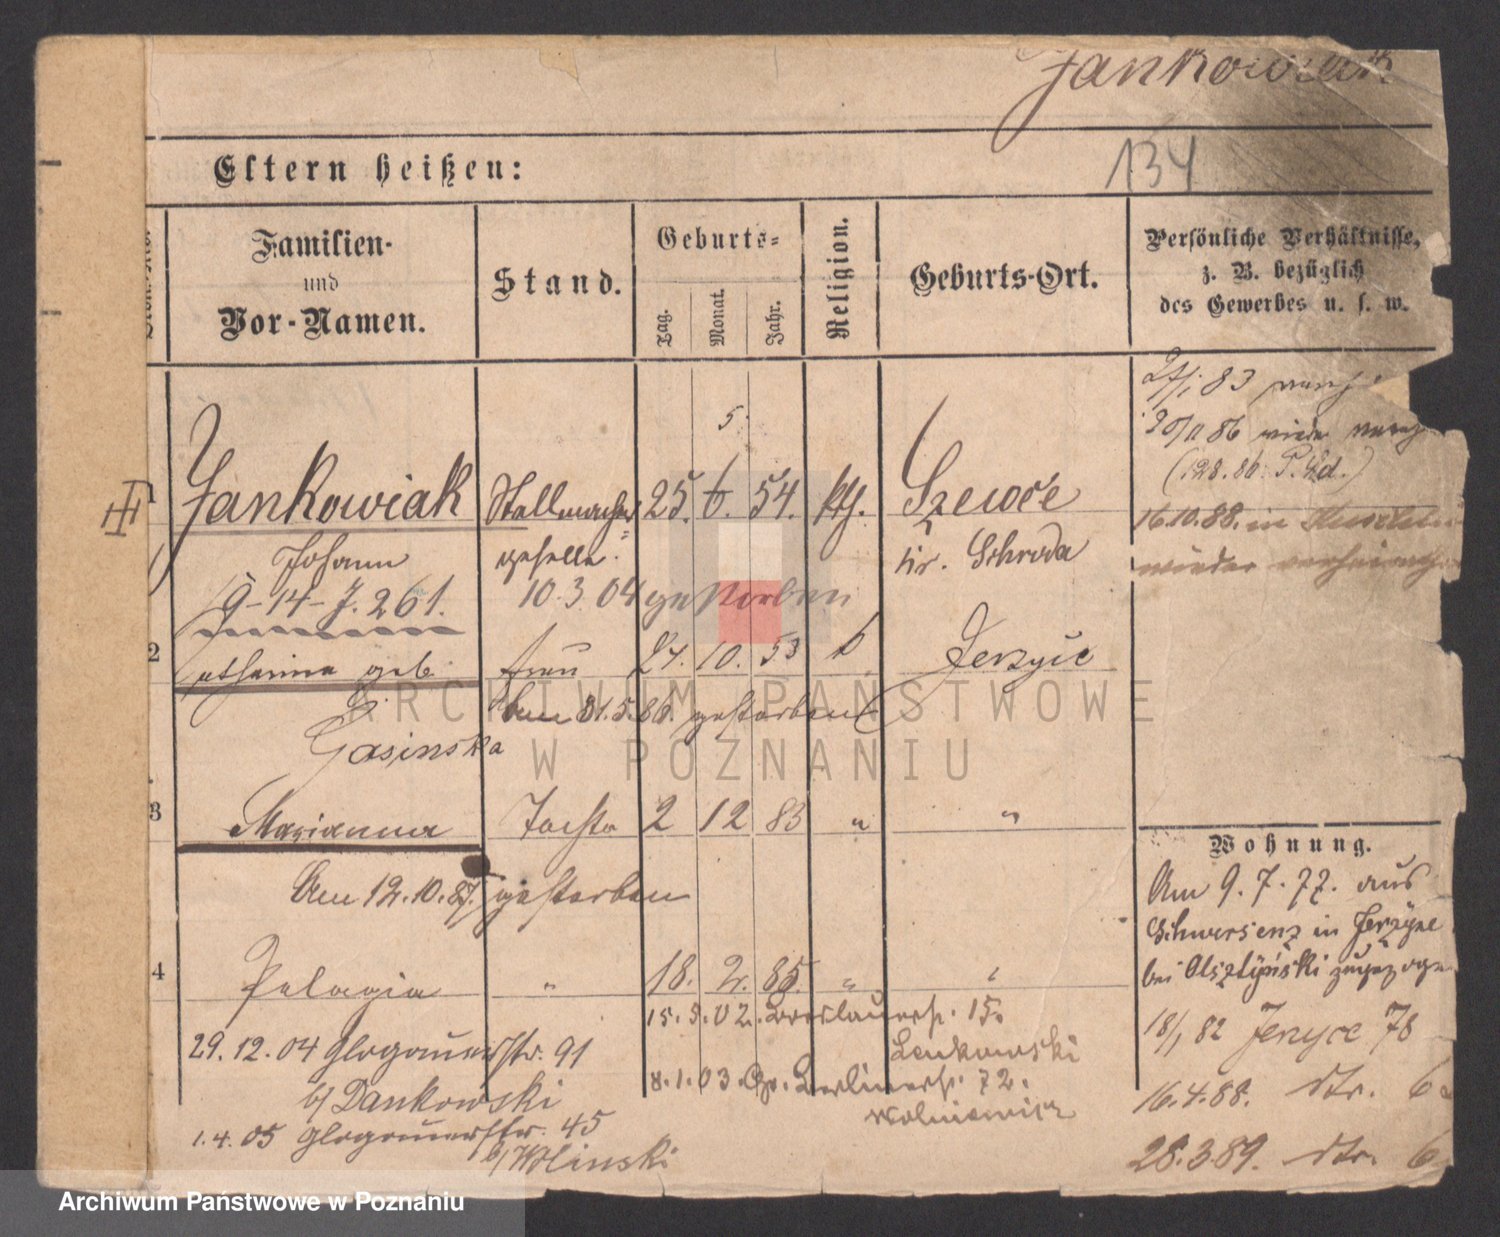 Jankowiak
134
Eltern heißen:
Familien- und Vor-Namen.
Stand.
Geburts-
Tag.
Monat.
Jahr.
Religion.
Geburts-Ort.
Persönliche Verhältnisse,
z. B. bezüglich
des Gewerbes u. s. w.
27/1 83
20/11 86 wieder
(12.8.86. P. Ed.)
16.10.88. in
wieder
5.
1 Jankowiak Stellmacher= 25. 6. 54. kth. Szewce
Johann geselle. kr. Schroda
9-14-J. 261. 10.3.04 gestorben
2 Catharina geb. frau 24. 10. 53 k Jerzyce
am 31.5.86. gestorben
Gasinska
3 Marianna Tochter 2 12 83 " "
Am 12.10.87. gestorben
4 Pelagia " 18. 2. 85. " "
Wohnung.
Am 9.7.77. aus
Schwersenz in Jerzyce
bei Olsztyński zugezogen
18/1 82 Jerzyce 78
16.4.88. dto. 6
28.3.89. dto. 6
15.9.02. Breslauerstr. 15.
Lenkowski
8.1.03. Gr. Berlinerstr. 72.
Wolniewicz
29.12.04 Glogauerstr. 91
b/ Dankowski
1.4.05 Glogauerstr. 45
b/ Wolinski
ARCHIWUM PAŃSTWOWE
W POZNANIU
Archiwum Państwowe w Poznaniu